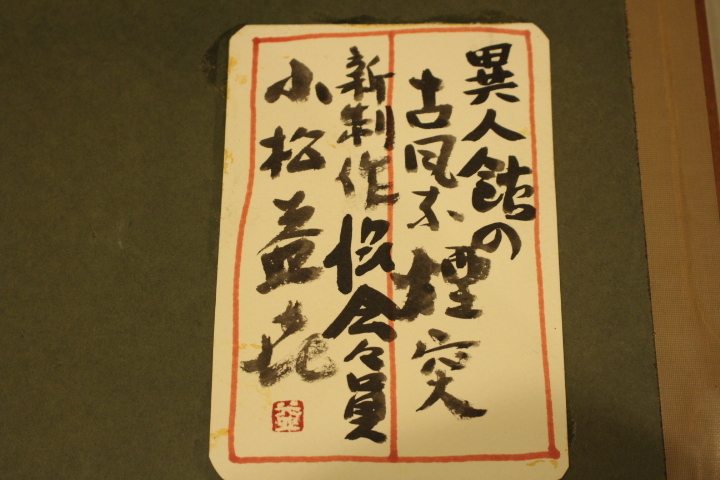 異人館の
古風な煙突
新制作協会々員
小松益喜